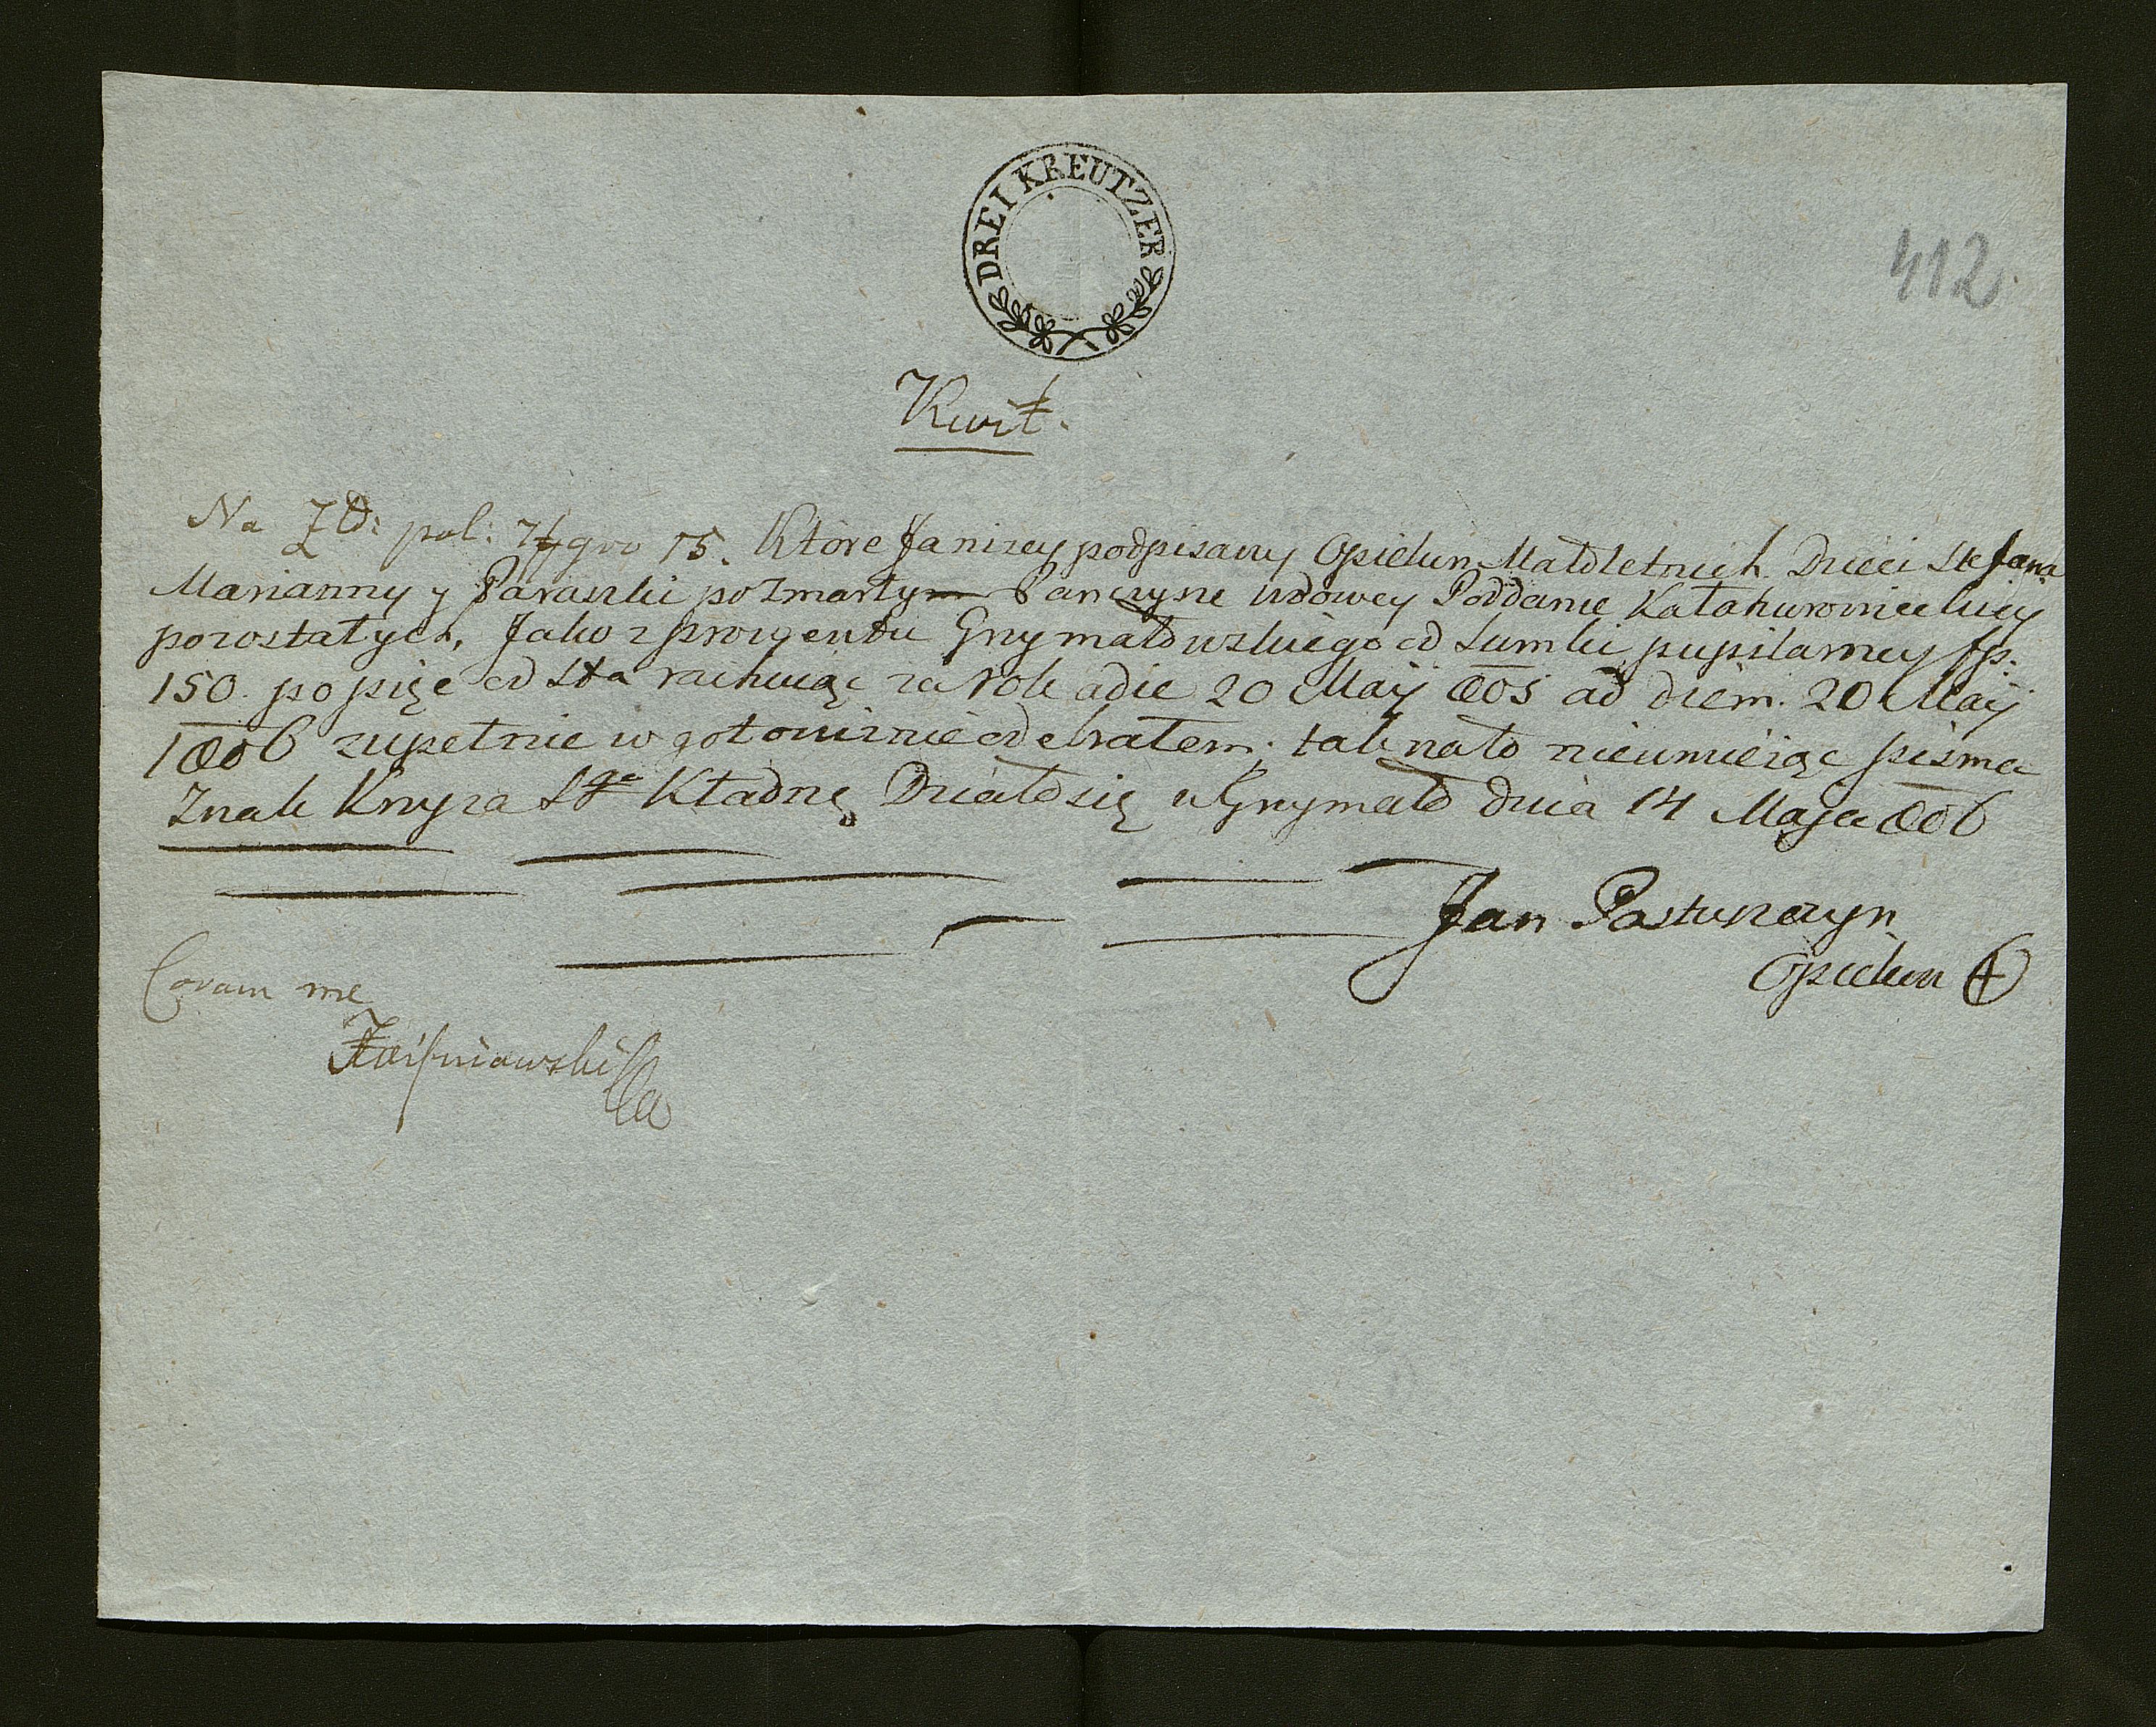 DREI KREUTZER
412.
Kwit.
Na Zł: pol: 7 gro 15. Ktore Ja nizey podpisany Opiekun Małoletnich Dzieci Stefana
Marianny y Paraszki po zmarłym Panczysze wdowey Poddanie Kałaharowieckiey
pozostałych, Jako z prowentu Grymałowskiego od Sumki pupilarney fp.
150. po pięc od Sta rachuiąc za Rok a die 20 Maij 805 ad diem. 20 Maij
1806 zupełnie w gotowiznie odebrałem; tak na to nieumieiąc pisma
Znak Krzyza Sgo Kładnę Działo się w Grymało dnia 14 Maja 806
Jan Pastuszczyn
Opiekun +
Coram me